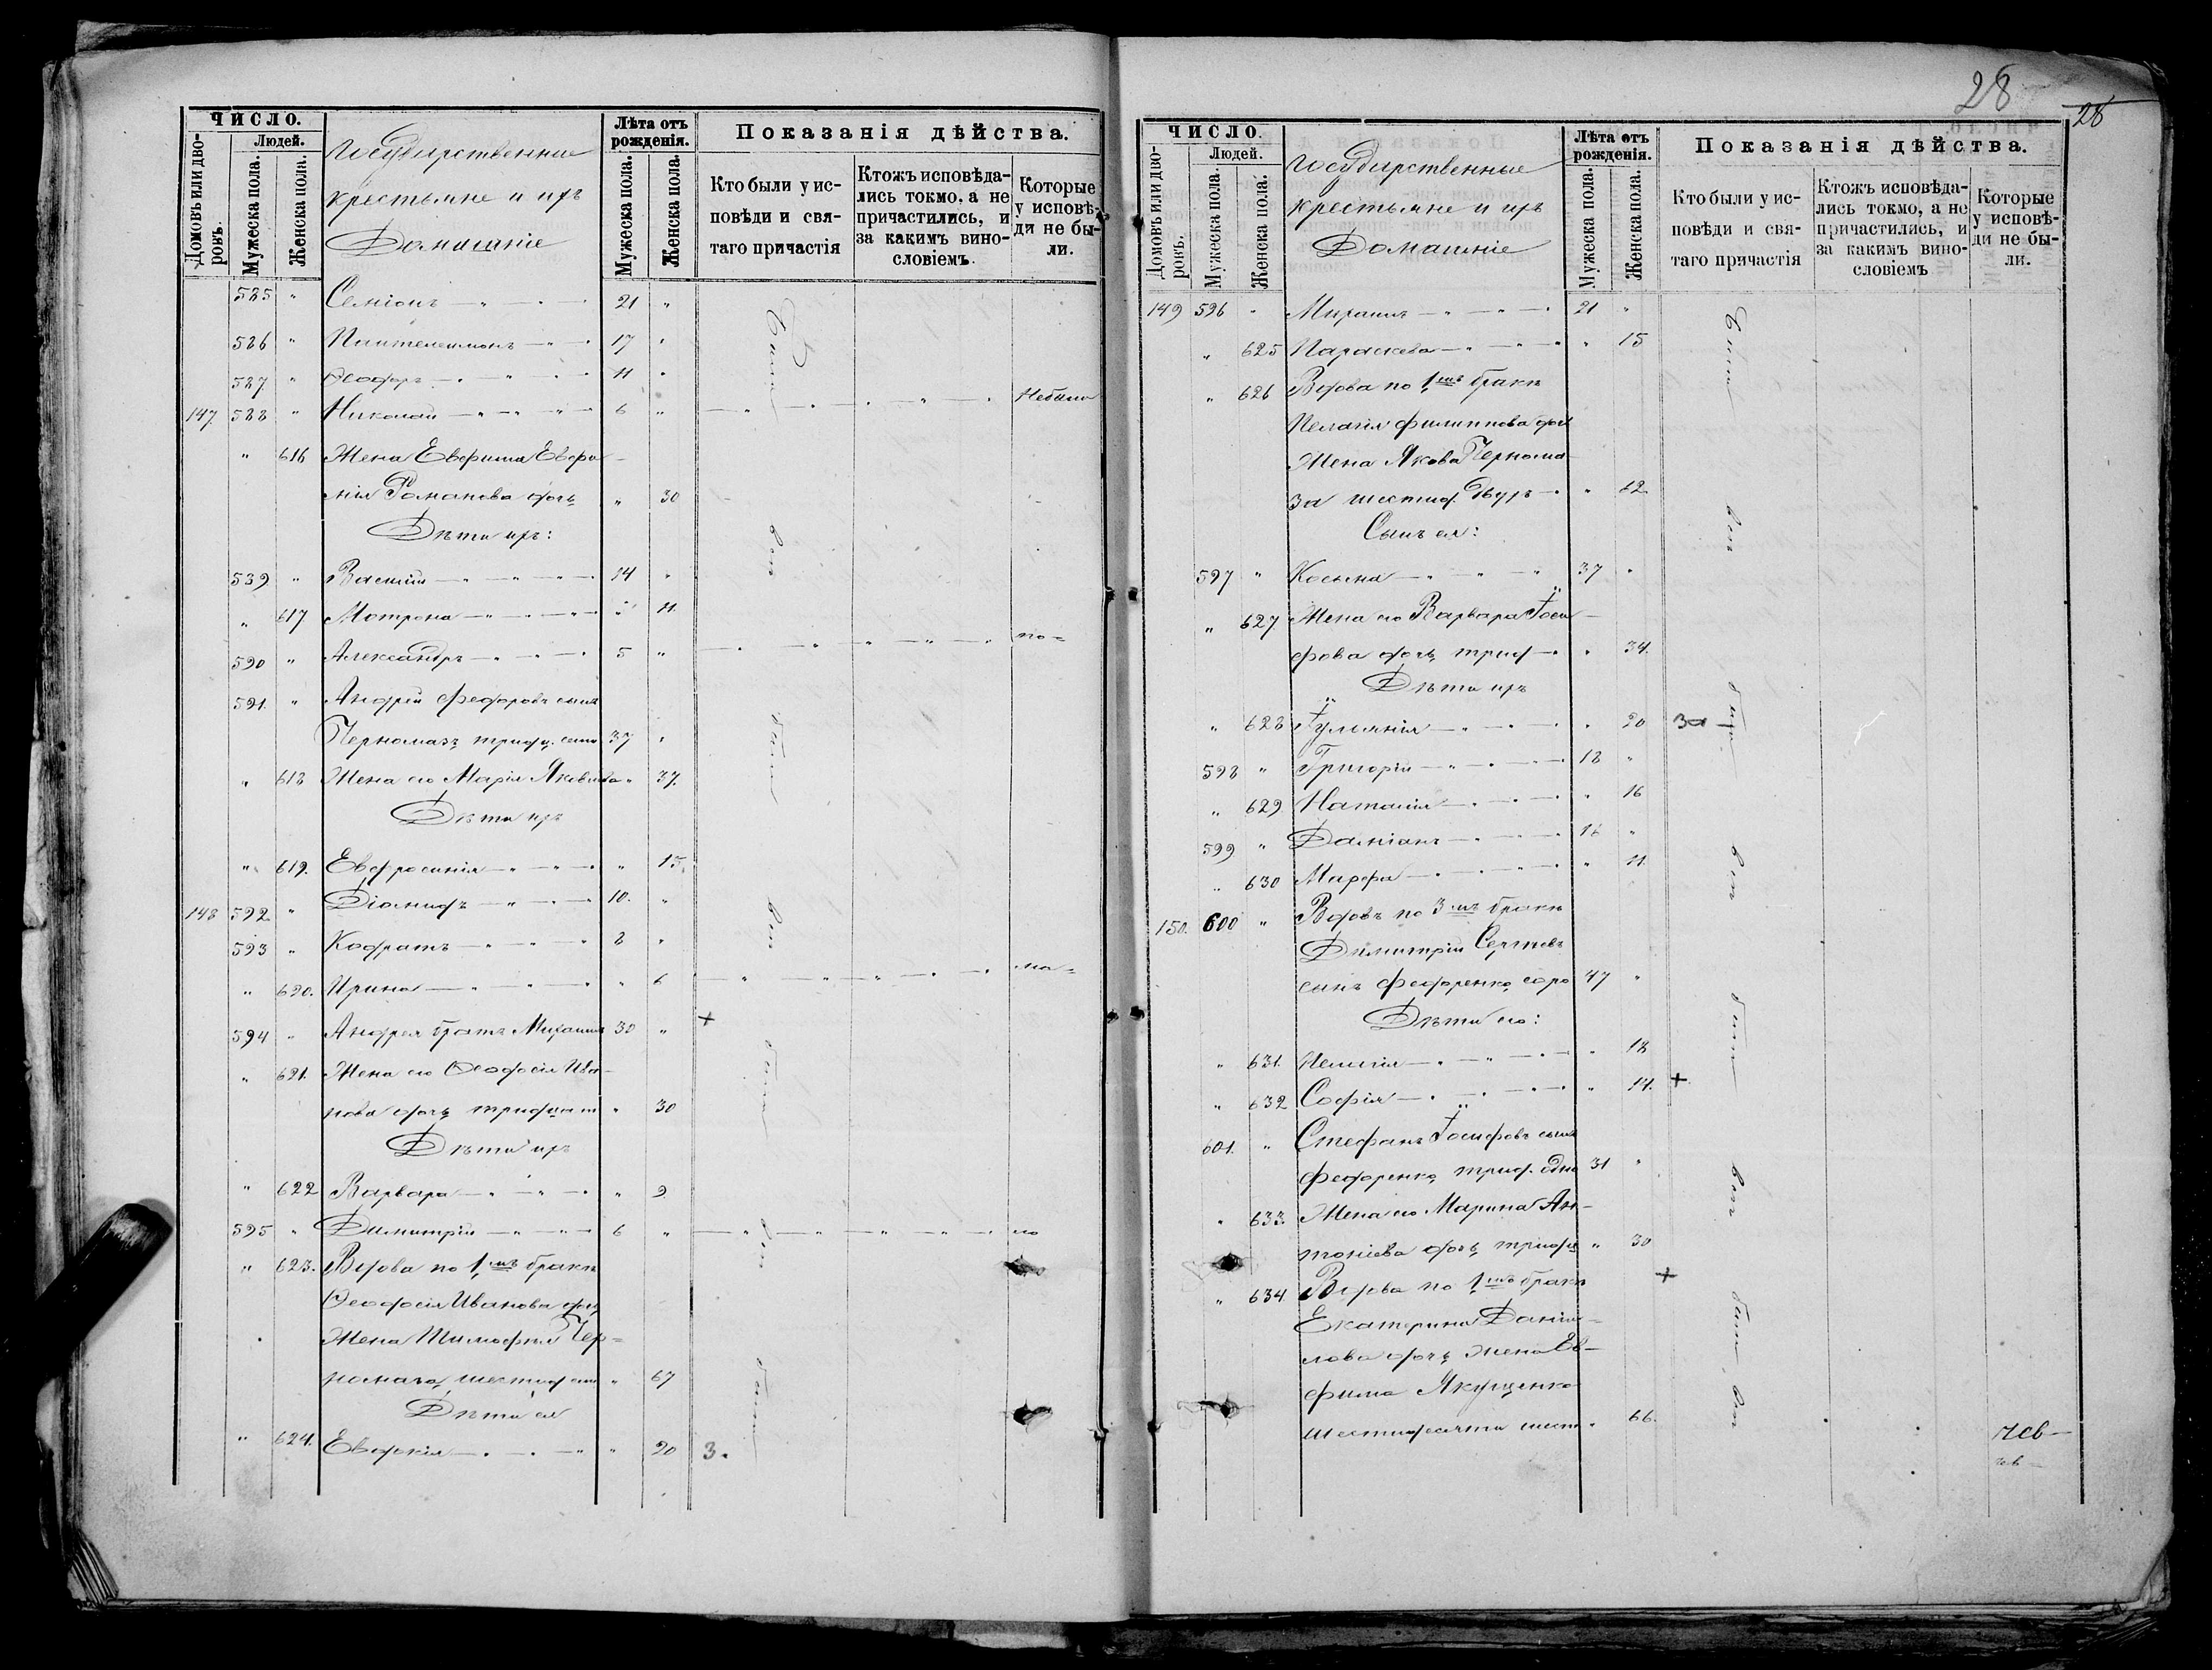 ЧИСЛО.
Людей.
Домовъ или дворовъ.
Мужеска пола.
Женска пола.
Государственние
крестьяне и ихъ
Домашніе
Лѣта отъ рожденія.
Мужеска пола.
Женска пола.
Показанія дѣйства.
Кто были у исповѣди и святаго причастія
Ктожъ исповѣдались токмо, а не причастились, и за какимъ винословіемъ.
Которые у исповѣди не были.
585 " Семіонъ — " — " — 21 "
586 " Пантелеимонъ — " — 17 "
587 " Ѳеодоръ — " — " — 11 "
147. 588 " Николай — " — " — 6 " Небыли
" 616 Жена Евфима Евфи-
мія Романова доч. " 30
Дѣти ихъ:
539 " Василій — " — " — 14 "
" 617 Мотрона — " — " — " 11.
590 " Александръ — " — " — 5 " по=
591. " Андрей Федоровъ сынъ
Черномазъ тридц. семи 37 "
" 618 Жена его Марія Яковлева " 37.
Дѣти ихъ
" 619. Евфросинія — " — " 15.
148 592 " Діомидъ — " — " — 10. "
593 " Кодратъ — " — " 8 "
" 620. Ирина — " — " — " 6
594 " Андрея братъ Михаилъ 30 " +
" 621. Жена его Ѳеодосія Ива-
нова доч. тридцати " 30
Дѣти ихъ
" 622 Варвара — " — " — " 9
595 " Димитрій — " — " — 6 "
" 623. Вдова по 1мъ бракѣ
Ѳеодосія Иванова доч.
Жена Тимофея Чер=
номаза, шестид. сем. " 67
Дѣти ея
" 624. Евдокія — " — " — " 20 3.
Были
вси
были
вси
были
вси
были
28
28
ЧИСЛО.
Людей.
Домовъ или дворовъ.
Мужеска пола.
Женска пола.
Государственные
крестьяне и ихъ
Домашніе
Лѣта отъ рожденія.
Мужеска пола.
Женска пола.
Показанія дѣйства.
Кто были у исповѣди и святаго причастія
Ктожъ исповѣдались токмо, а не причастились, и за какимъ винословіемъ
Которые у исповѣди не были.
149 596 " Михаилъ — " — " — 21 "
" 625 Параскева — " — " — " 15
" 626 Вдова по 1мъ бракѣ
Пелагія Филиппова доч.
Жена Якова Чернома-
за шестид. двухъ — " 62
Сынъ ея:
597 " Косьма — " — " 37 "
" 627. Жена его Варвара Іоси-
фова доч. трид — " 34.
Дѣти ихъ
" 628 Іуліянія — " — " — " 20 За
598 " Григорій — " — " — 18 "
" 629. Наталія — " — " — " 16
599 " Даміанъ — " — " — 16 "
" 630 Марфа — " — " — " 11
150. 600 " Вдовъ по 3мъ бракѣ
Димитрій Сергѣевъ
сынъ Федоренко, соро 47 "
Дѣти его:
" 631. Пелагія — " — " — " 18
" 632 Софія — " — " — " 14. +
601. " Стефанъ Іосифовъ сынъ
Федоренко, трид. одно 31 "
" 633. Жена его Марина Ан-
тоніева доч. тридц " 30
" 634 Вдова по 1мъ бракѣ +
Екатерина Даніи=
лова доч. жена Ев-
фима Якущенко
шестидесяти шести " 66.
Были
вси
были
вси
были
вси
были
вси